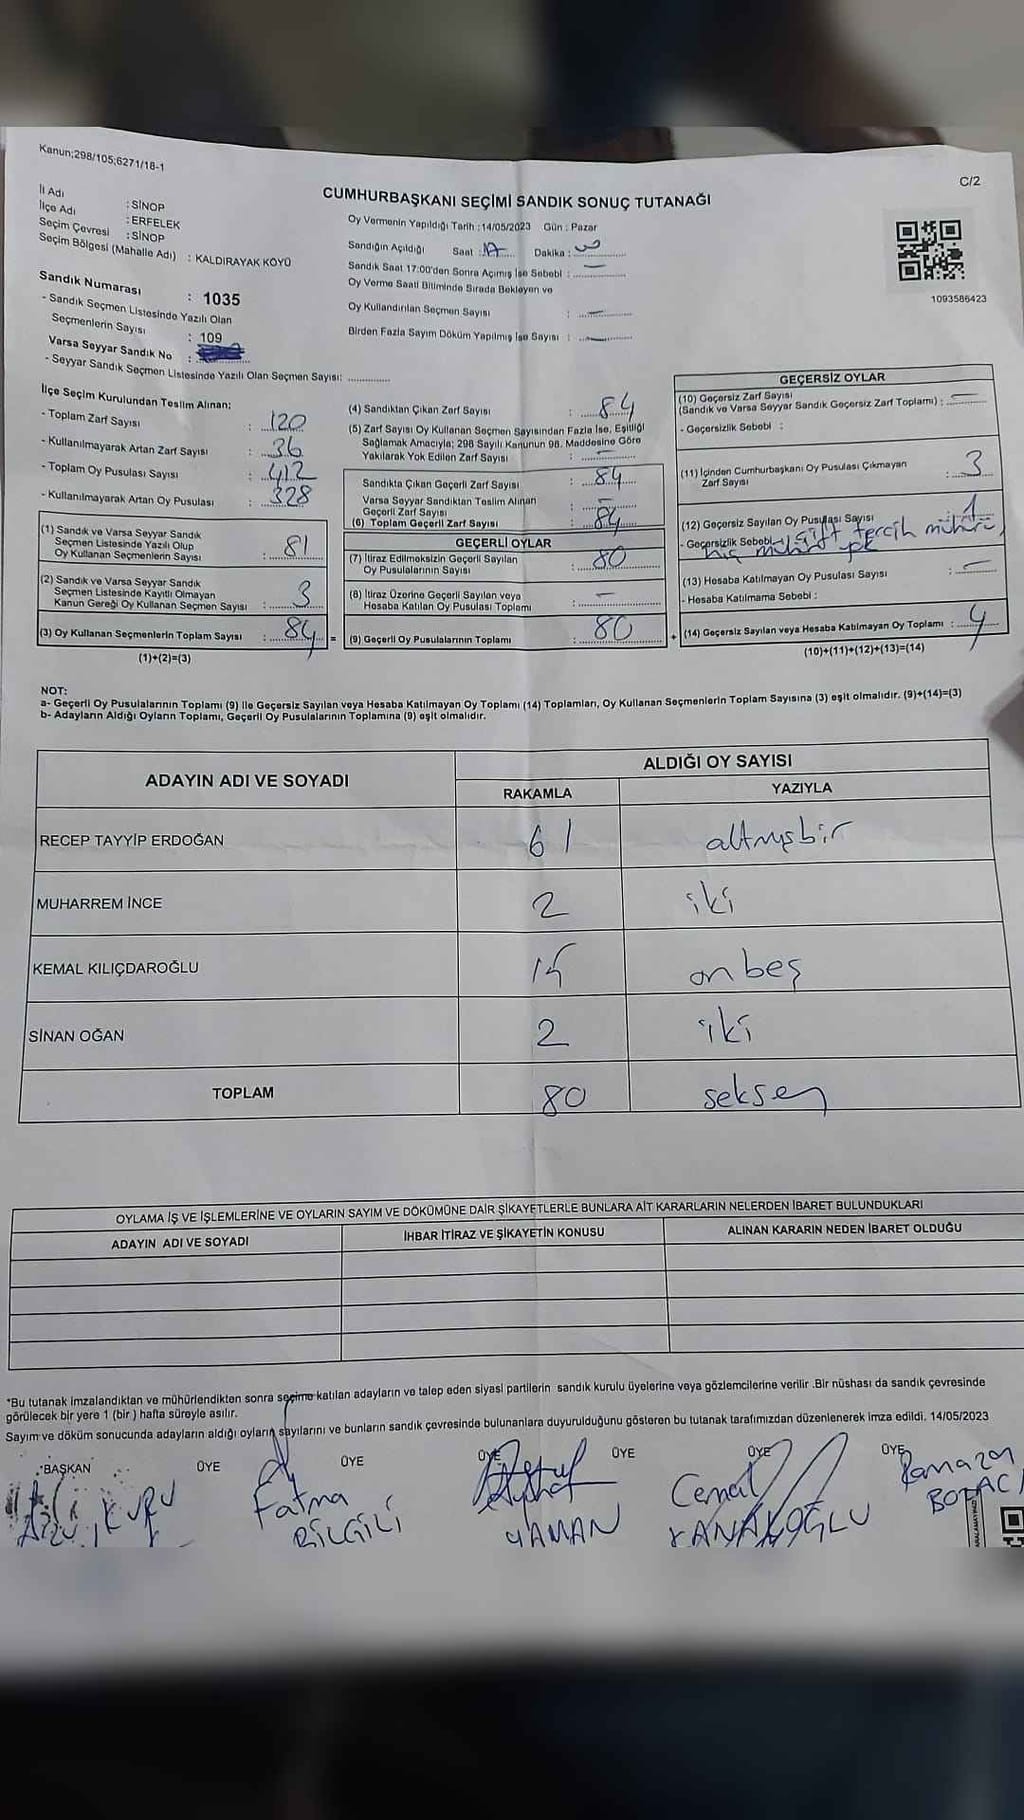 Kanun;298/105;6271/18-1
C/2
CUMHURBAŞKANI SEÇİMİ SANDIK SONUÇ TUTANAĞI
İl Adı : SİNOP
İlçe Adı : ERFELEK
Seçim Çevresi : SİNOP
Seçim Bölgesi (Mahalle Adı) : KALDIRAYAK KÖYÜ
Sandık Numarası : 1035
- Sandık Seçmen Listesinde Yazılı Olan
Seçmenlerin Sayısı : 109
Varsa Seyyar Sandık No :
- Seyyar Sandık Seçmen Listesinde Yazılı Olan Seçmen Sayısı: ............
Oy Vermenin Yapıldığı Tarih :14/05/2023 Gün : Pazar
Sandığın Açıldığı Saat : 17 Dakika :
Sandık Saat 17:00'den Sonra Açımış İse Sebebi : –
Oy Verme Saati Bitiminde Sırada Bekleyen ve
Oy Kullandırılan Seçmen Sayısı : –
Birden Fazla Sayım Döküm Yapılmış İse Sayısı : –
1093586423
İlçe Seçim Kurulundan Teslim Alınan:
- Toplam Zarf Sayısı : 120
- Kullanılmayarak Artan Zarf Sayısı : 36
- Toplam Oy Pusulası Sayısı : 412
- Kullanılmayarak Artan Oy Pusulası : 328
(1) Sandık ve Varsa Seyyar Sandık
Seçmen Listesinde Yazılı Olup
Oy Kullanan Seçmenlerin Sayısı : 81
(2) Sandık ve Varsa Seyyar Sandık
Seçmen Listesinde Kayıtlı Olmayan
Kanun Gereği Oy Kullanan Seçmen Sayısı : 3
(3) Oy Kullanan Seçmenlerin Toplam Sayısı : 84 =
(1)+(2)=(3)
(4) Sandıktan Çıkan Zarf Sayısı : 84
(5) Zarf Sayısı Oy Kullanan Seçmen Sayısından Fazla İse, Eşitliği
Sağlamak Amacıyla; 298 Sayılı Kanunun 98. Maddesine Göre
Yakılarak Yok Edilen Zarf Sayısı : –
Sandıkta Çıkan Geçerli Zarf Sayısı : 84
Varsa Seyyar Sandıktan Teslim Alınan
Geçerli Zarf Sayısı : –
(6) Toplam Geçerli Zarf Sayısı : 84
GEÇERLİ OYLAR
(7) İtiraz Edilmeksizin Geçerli Sayılan
Oy Pusulalarının Sayısı : 80
(8) İtiraz Üzerine Geçerli Sayılan veya
Hesaba Katılan Oy Pusulası Toplamı : –
(9) Geçerli Oy Pusulalarının Toplamı : 80 +
GEÇERSİZ OYLAR
(10) Geçersiz Zarf Sayısı
(Sandık ve Varsa Seyyar Sandık Geçersiz Zarf Toplamı) : –
- Geçersizlik Sebebi :
(11) İçinden Cumhurbaşkanı Oy Pusulası Çıkmayan
Zarf Sayısı : 3
(12) Geçersiz Sayılan Oy Pusulası Sayısı : 1
- Geçersizlik Sebebi : çift tercih mührü,
hiç mühür yok
(13) Hesaba Katılmayan Oy Pusulası Sayısı : –
- Hesaba Katılmama Sebebi :
(14) Geçersiz Sayılan veya Hesaba Katılmayan Oy Toplamı : 4
(10)+(11)+(12)+(13)=(14)
NOT:
a- Geçerli Oy Pusulalarının Toplamı (9) ile Geçersiz Sayılan veya Hesaba Katılmayan Oy Toplamı (14) Toplamları, Oy Kullanan Seçmenlerin Toplam Sayısına (3) eşit olmalıdır. (9)+(14)=(3)
b- Adayların Aldığı Oyların Toplamı, Geçerli Oy Pusulalarının Toplamına (9) eşit olmalıdır.
ADAYIN ADI VE SOYADI ALDIĞI OY SAYISI
RAKAMLA YAZIYLA
RECEP TAYYİP ERDOĞAN 61 altmışbir
MUHARREM İNCE 2 iki
KEMAL KILIÇDAROĞLU 15 on beş
SİNAN OĞAN 2 iki
TOPLAM 80 seksen
OYLAMA İŞ VE İŞLEMLERİNE VE OYLARIN SAYIM VE DÖKÜMÜNE DAİR ŞİKAYETLERLE BUNLARA AİT KARARLARIN NELERDEN İBARET BULUNDUKLARI
ADAYIN ADI VE SOYADI İHBAR İTİRAZ VE ŞİKAYETİN KONUSU ALINAN KARARIN NEDEN İBARET OLDUĞU
*Bu tutanak imzalandıktan ve mühürlendikten sonra seçime katılan adayların ve talep eden siyasi partilerin sandık kurulu üyelerine veya gözlemcilerine verilir .Bir nüshası da sandık çevresinde
görülecek bir yere 1 (bir ) hafta süreyle asılır.
Sayım ve döküm sonucunda adayların aldığı oyların sayılarını ve bunların sandık çevresinde bulunanlara duyurulduğunu gösteren bu tutanak tarafımızdan düzenlenerek imza edildi. 14/05/2023
BAŞKAN ÜYE ÜYE ÜYE ÜYE ÜYE ÜYE
KURU
Fatma
BİLGİLİ
YAMAN
Cemal
Ramazan